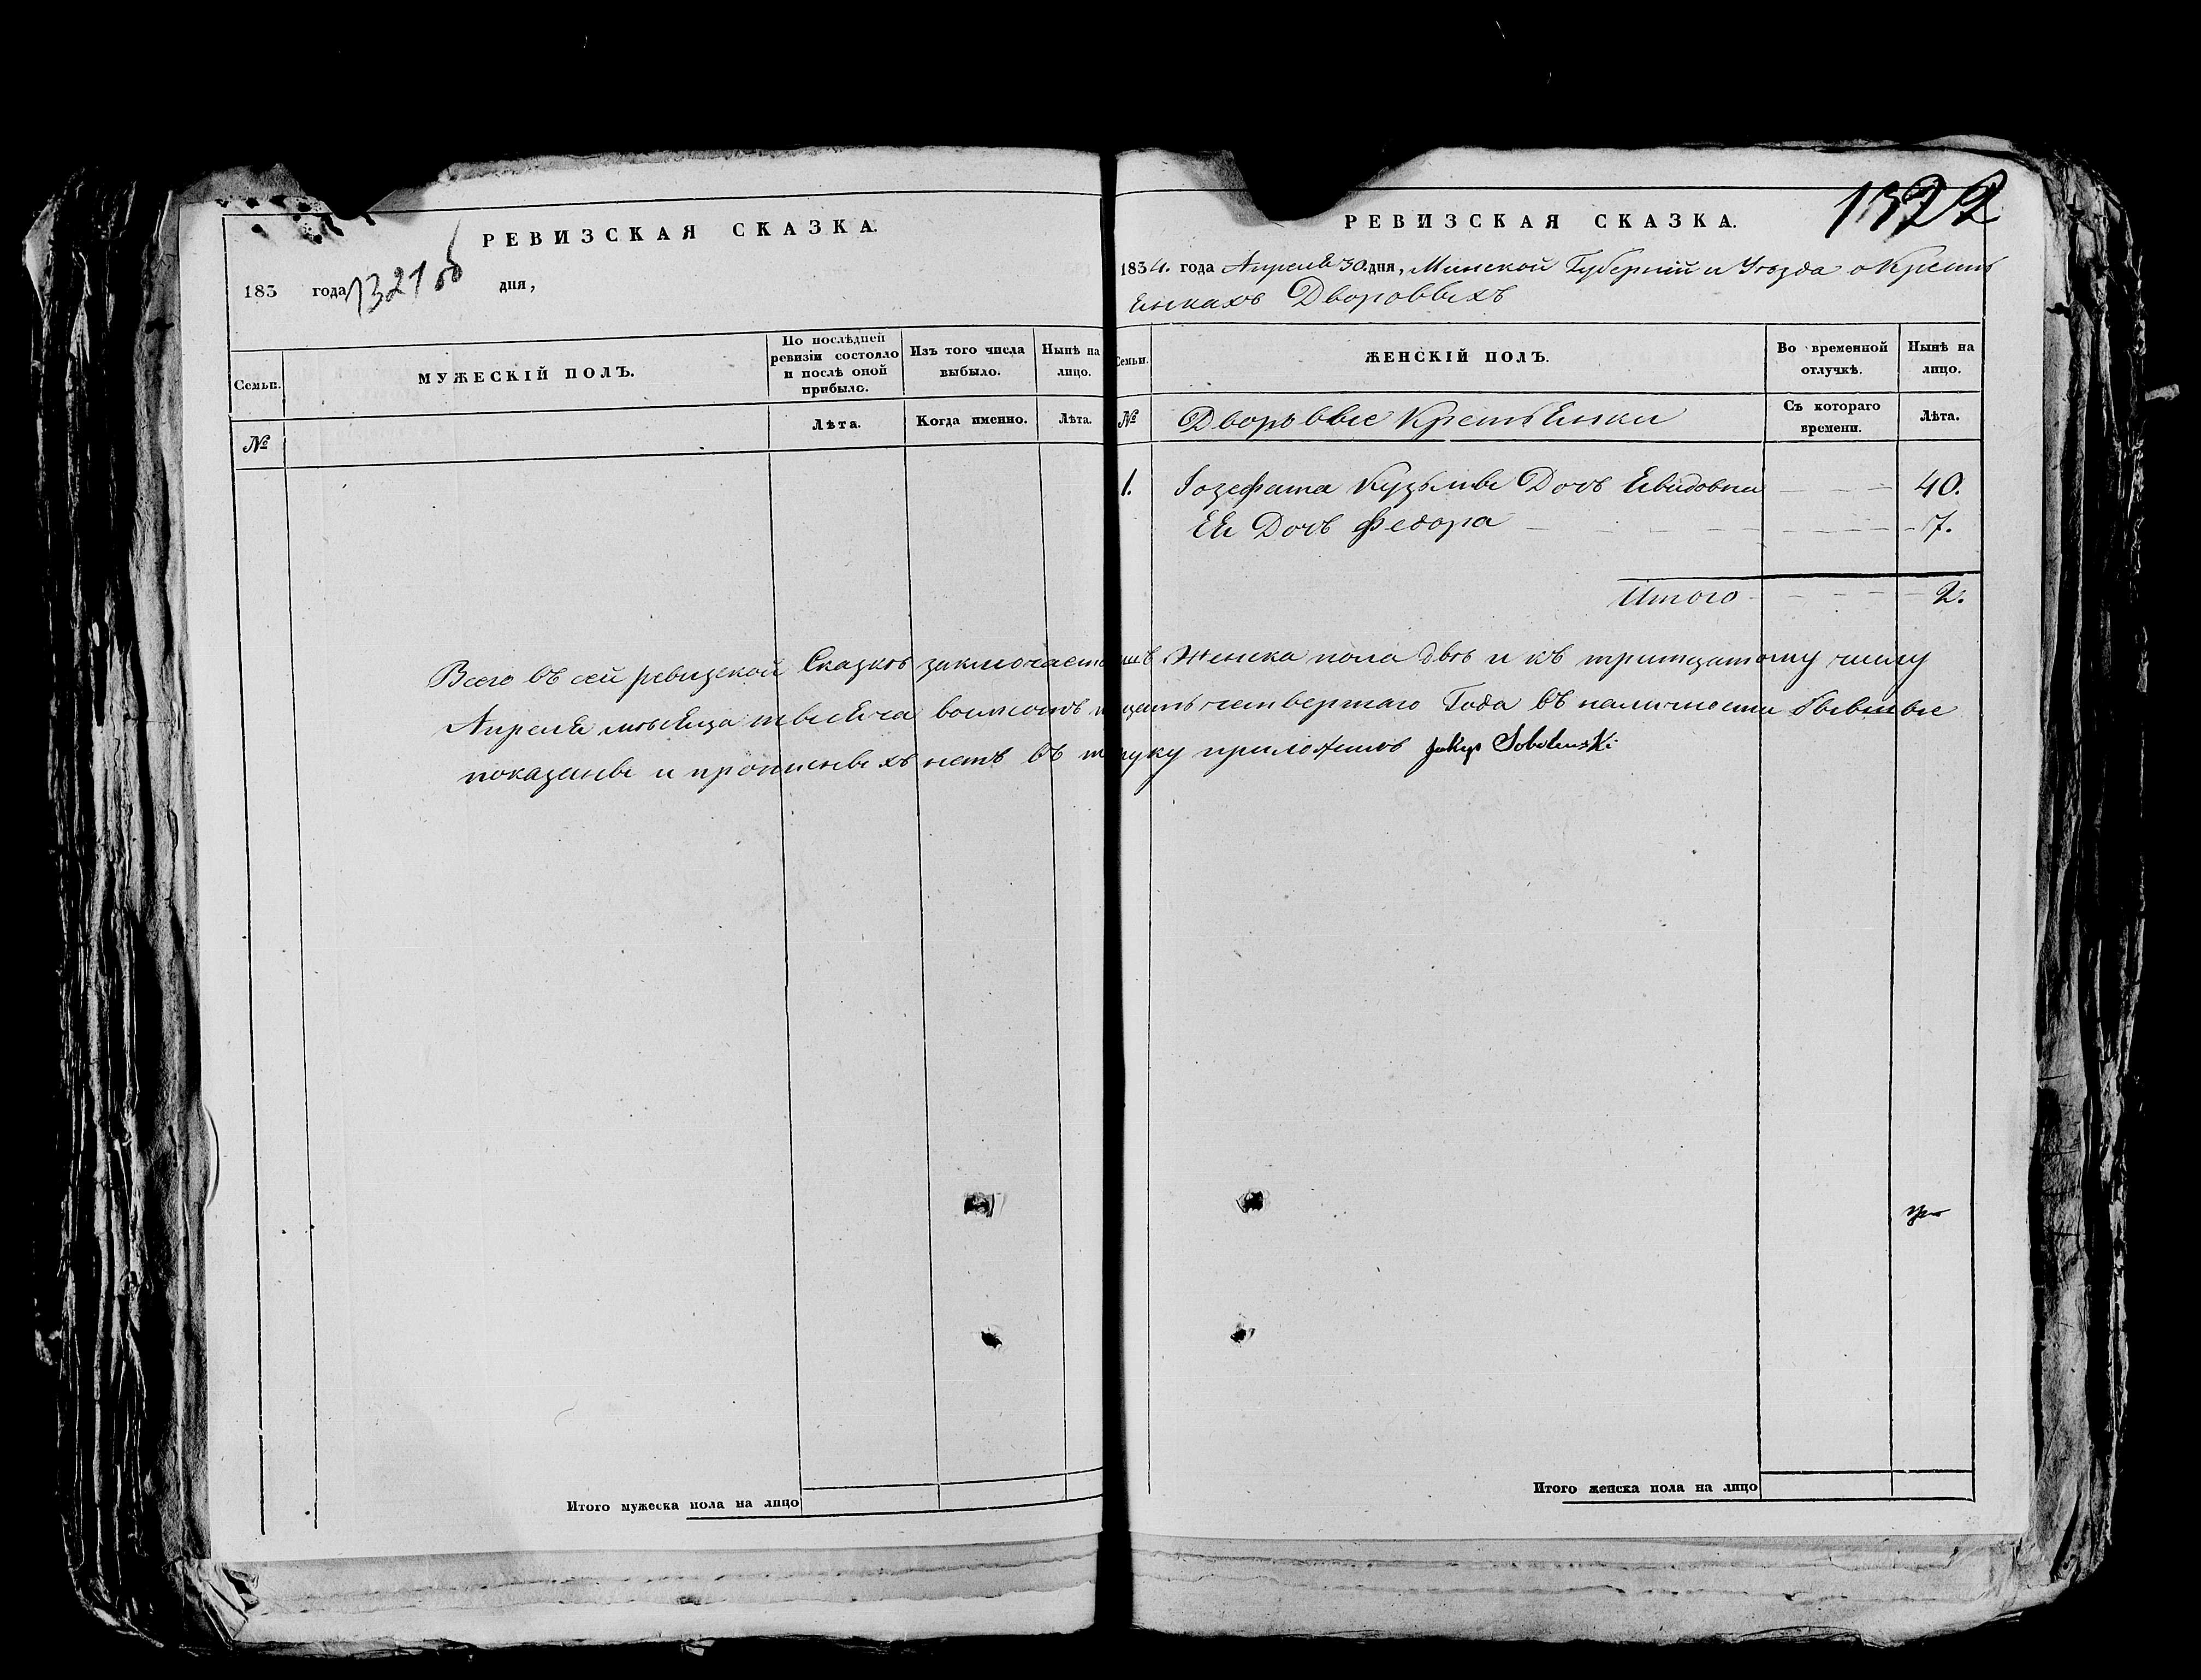 РЕВИЗСКАЯ СКАЗКА.
183 года 1321 об дня,
Семьи.
МУЖЕСКІЙ ПОЛЪ.
По послѣдней ревизіи состояло и послѣ оной прибыло.
Изъ того числа выбыло.
Нынѣ на лицо.
№
Лѣта.
Когда именно.
Лѣта.
1322
РЕВИЗСКАЯ СКАЗКА.
1834. года Апреля 30. дня, Минской Губерніи и Уѣзда о Кресть
янкахъ Дворовыхъ
Семьи.
ЖЕНСКІЙ ПОЛЪ.
Во временной отлучкѣ.
Нынѣ на лицо.
№
Дворовые Крестьянки
Съ котораго времени.
Лѣта.
1. Іозефата Кузьмы Дочь 40.
Ея Дочь Федора 7.
Итого 2.
Всего въ сей ревизской Сказкѣ заключается Женска пола двѣ и къ тритцатому числу
Апреля мѣсяца тысяча восмсотъ четвертаго Года въ наличности бывшые
показаны и прописныхъ нетъ въ руку приложилъ Jakup Sobolewski
Итого мужеска пола на лицо
Итого женска пола на лицо